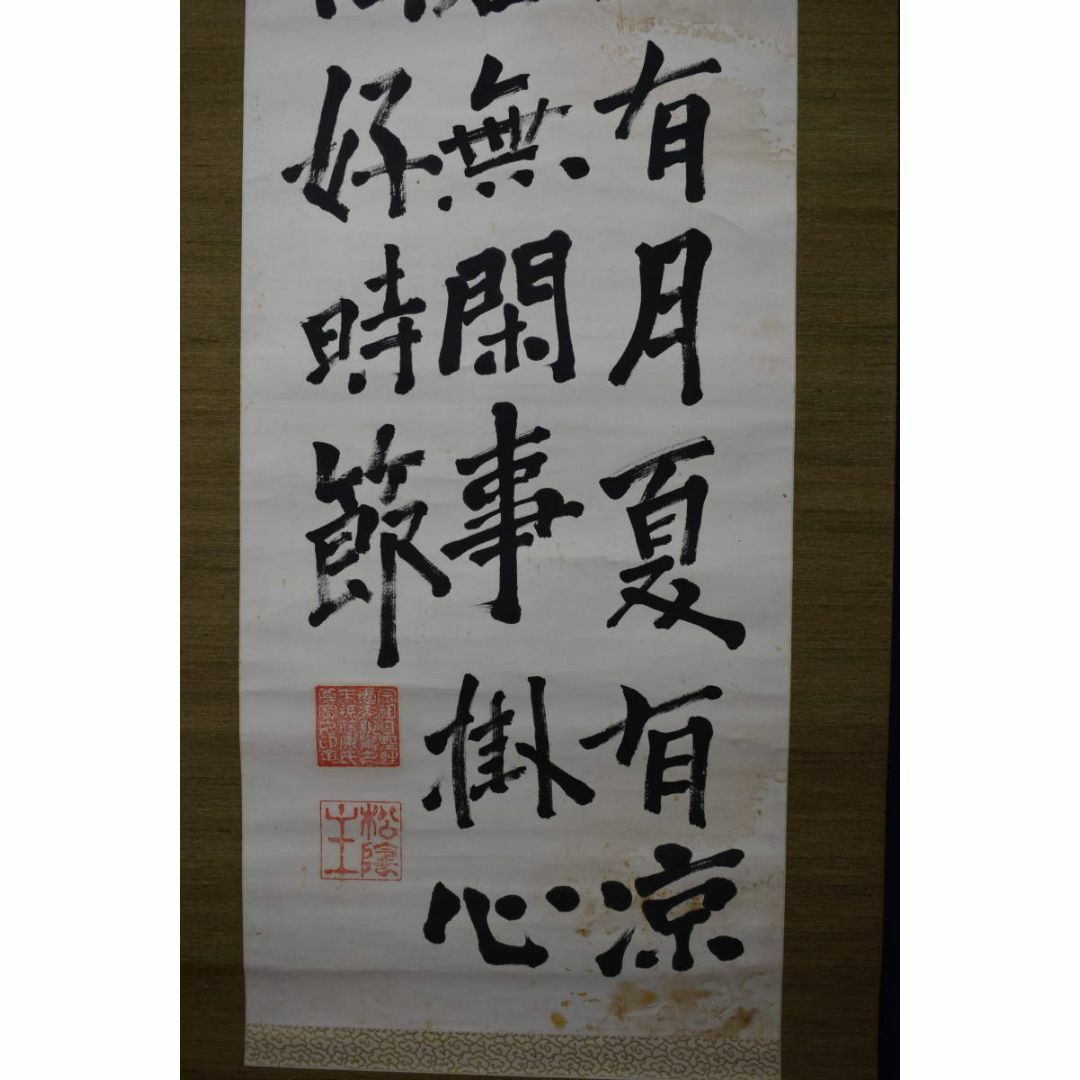 有月夏有涼
無閑事掛心
好時節
松陰